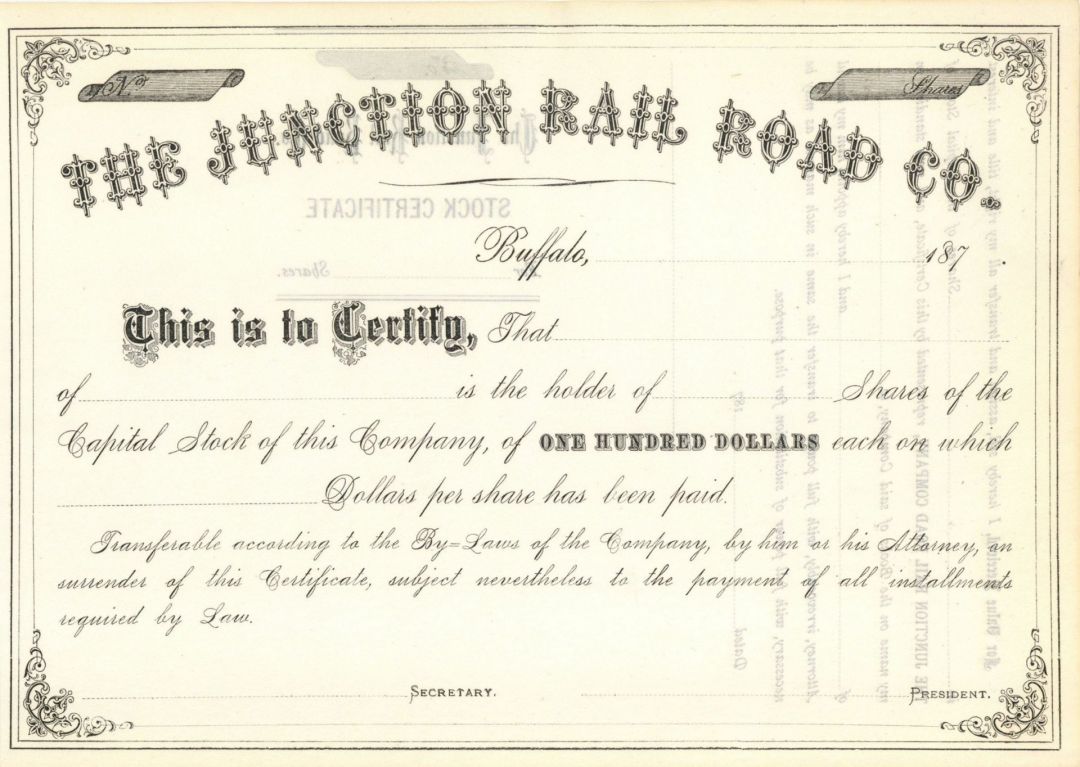 No.
Shares
THE JUNCTION RAIL ROAD CO.
Buffalo, 187 .
This is to Certify, That
of is the holder of Shares of the
Capital Stock of this Company, of ONE HUNDRED DOLLARS each on which
Dollars per share has been paid.
Transferable according to the By=Laws of the Company, by him or his Attorney, on
surrender of this Certificate, subject nevertheless to the payment of all installments
required by Law.
SECRETARY. PRESIDENT.
STOCK CERTIFICATE
Shares.